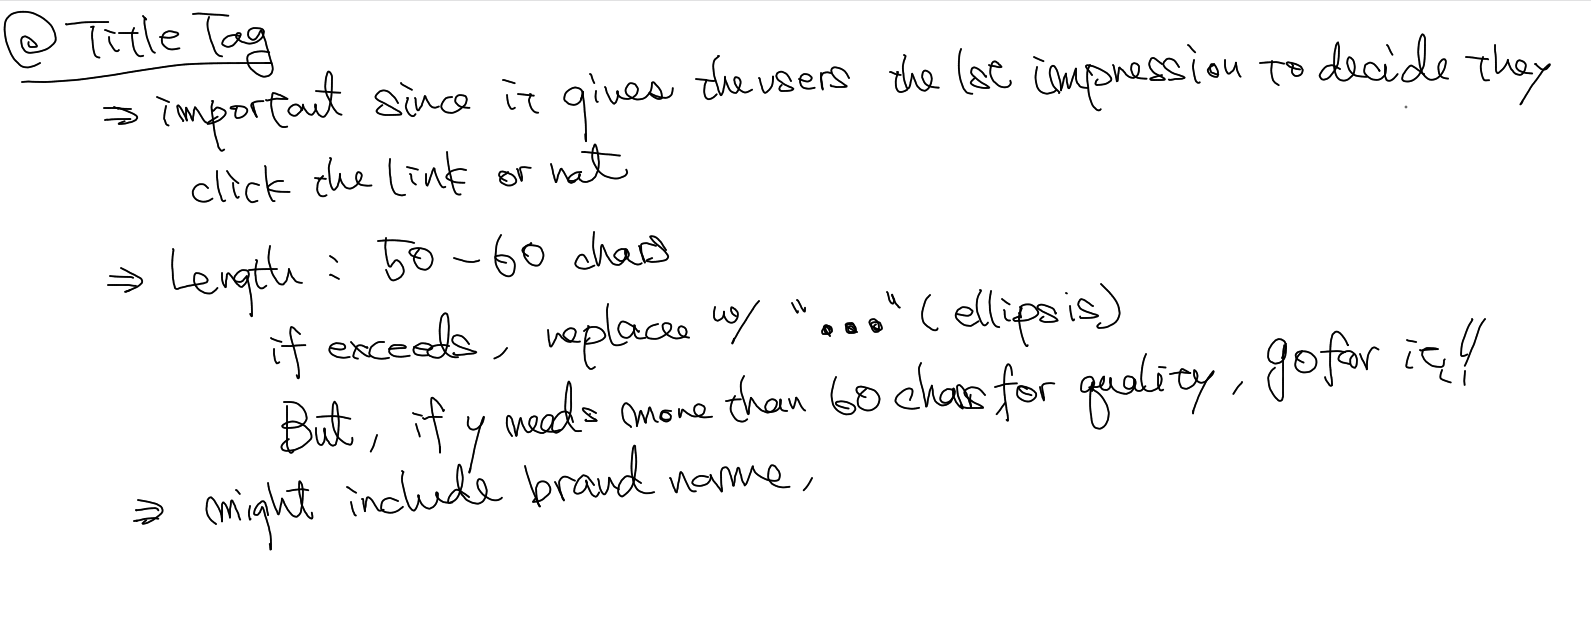 @ Title Tag
⇒ important since it gives the users the 1st impression to decide they
click the link or not
⇒ Length : 50 - 60 chars
if exceeds, replace w/ "..." (ellipsis)
But, if y needs more than 60 chars for quality, go for it!!
⇒ might include brand name,